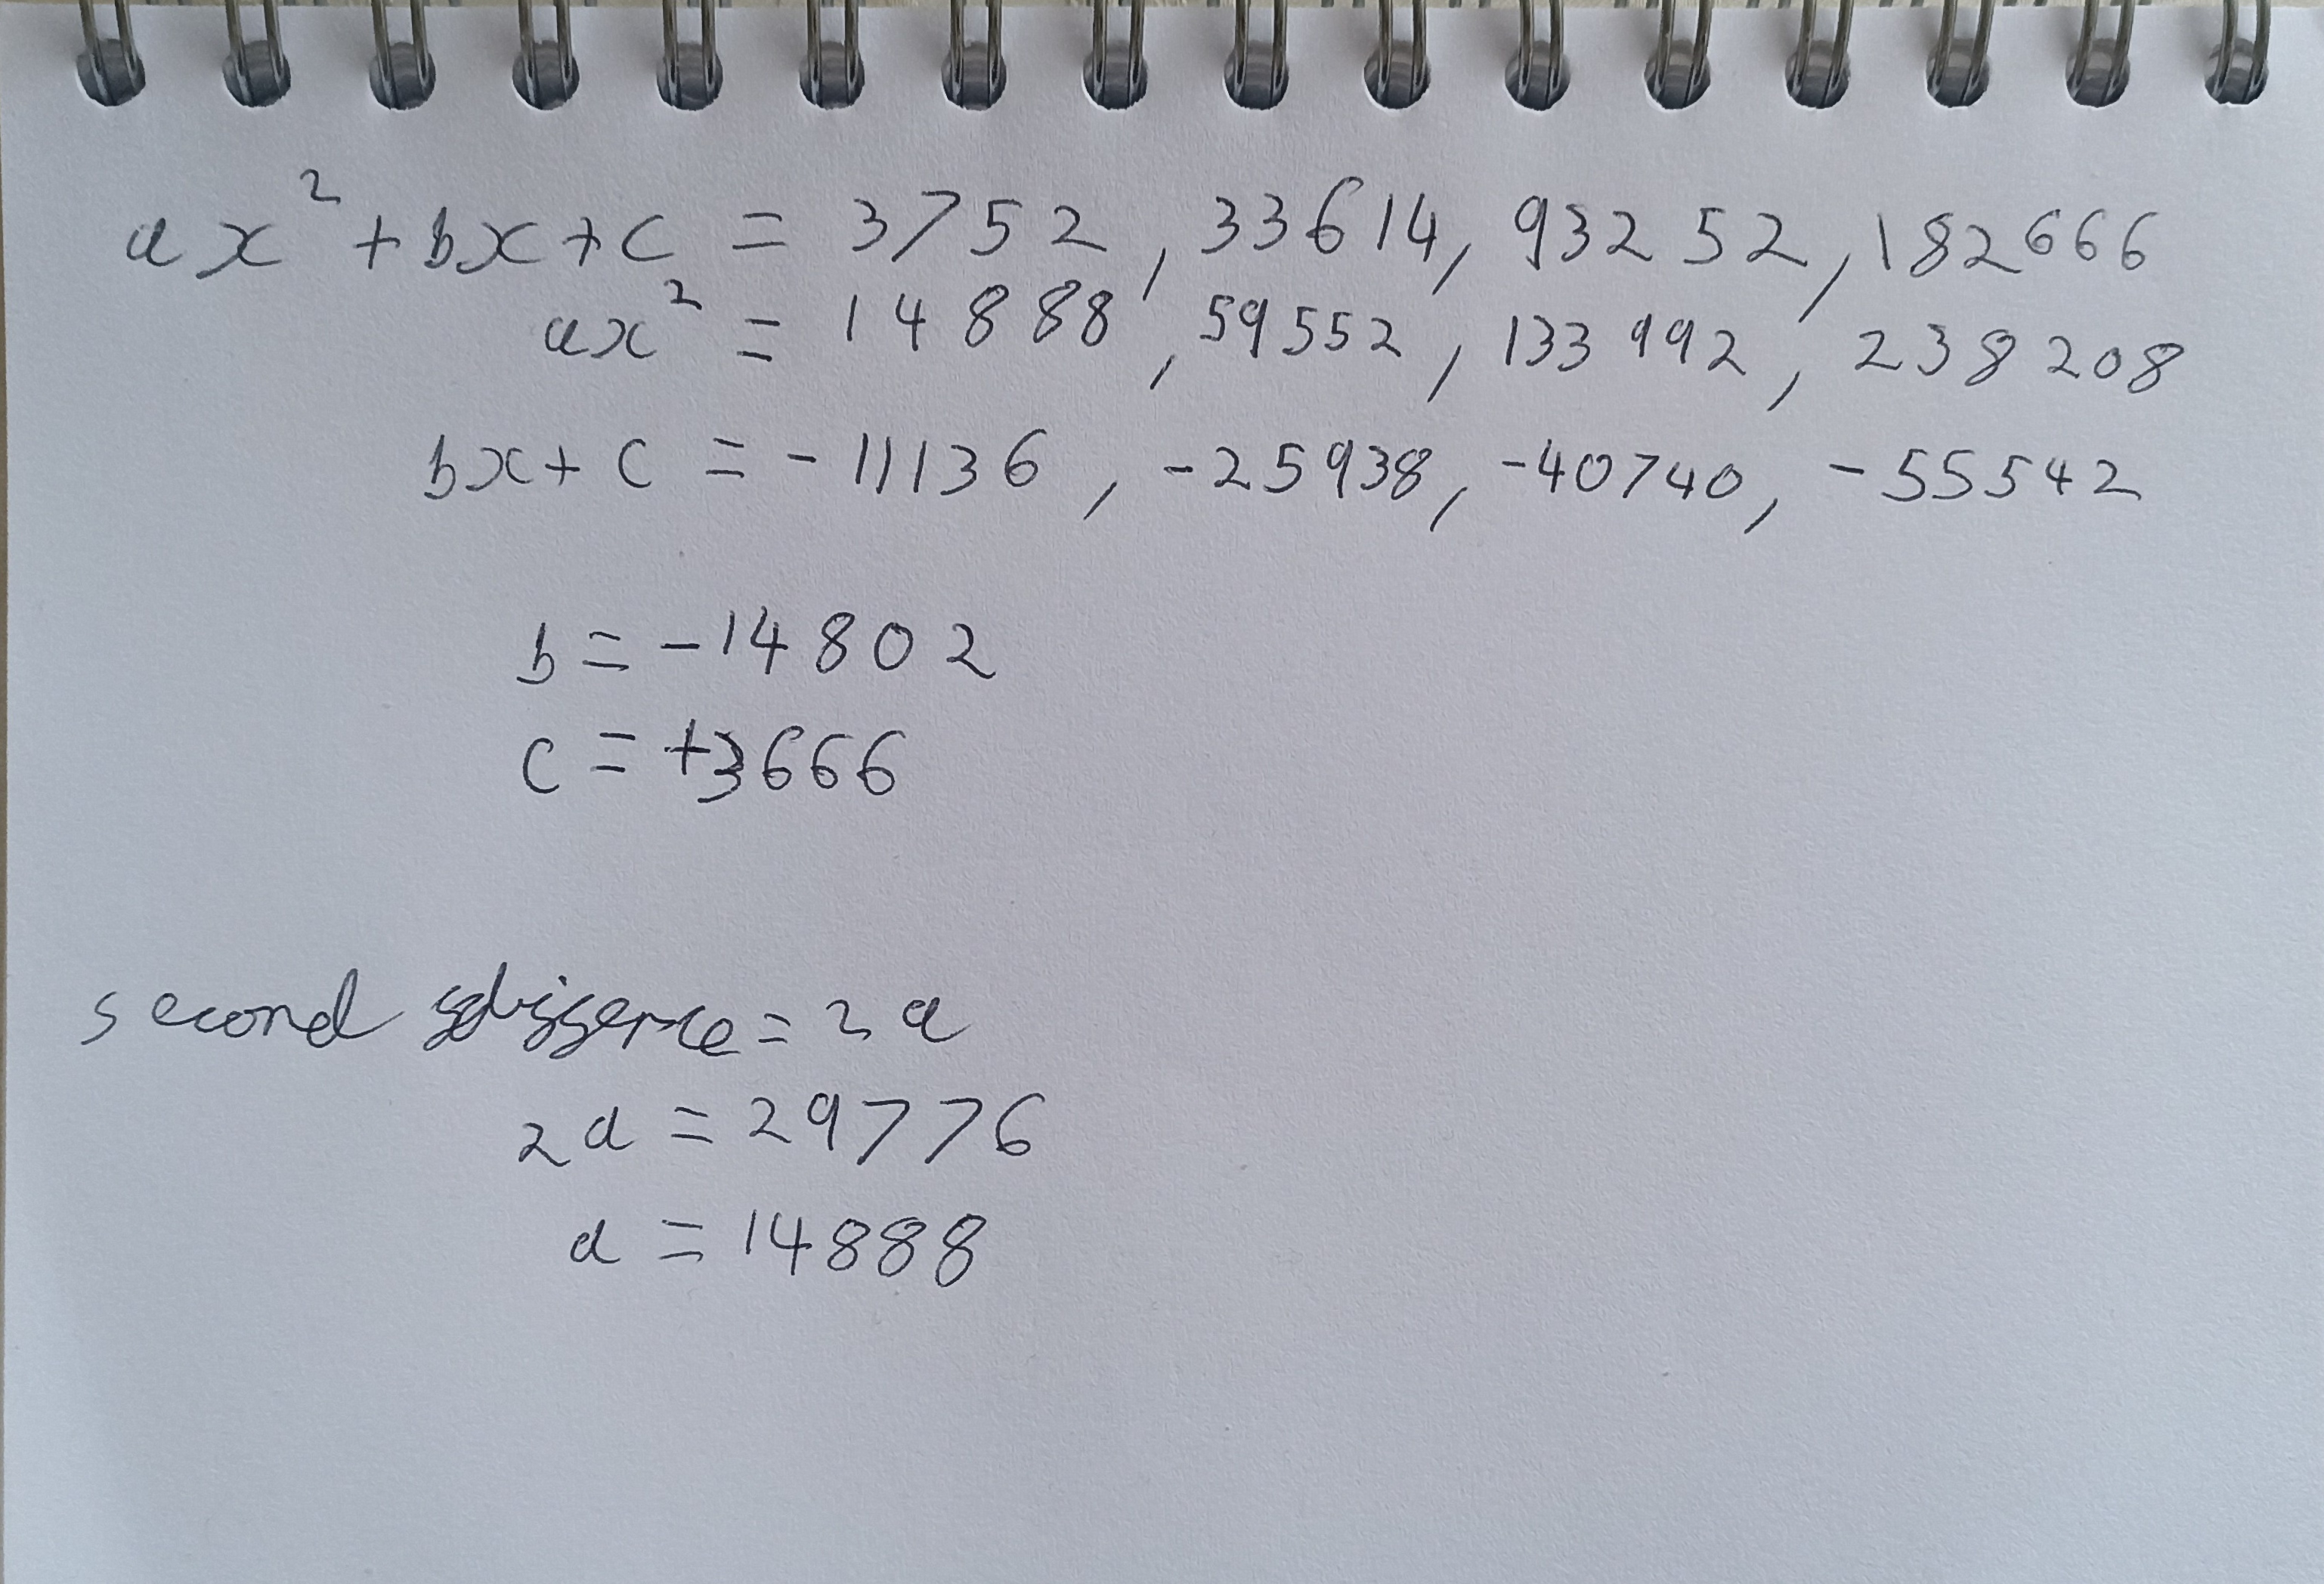 ax² + bx + c = 3752, 33614, 93252, 182666
ax² = 14888, 59552, 133992, 238208
bx + c = -11136, -25938, -40740, -55542
b = -14802
c = +3666
second difference = 2a
2a = 29776
a = 14888